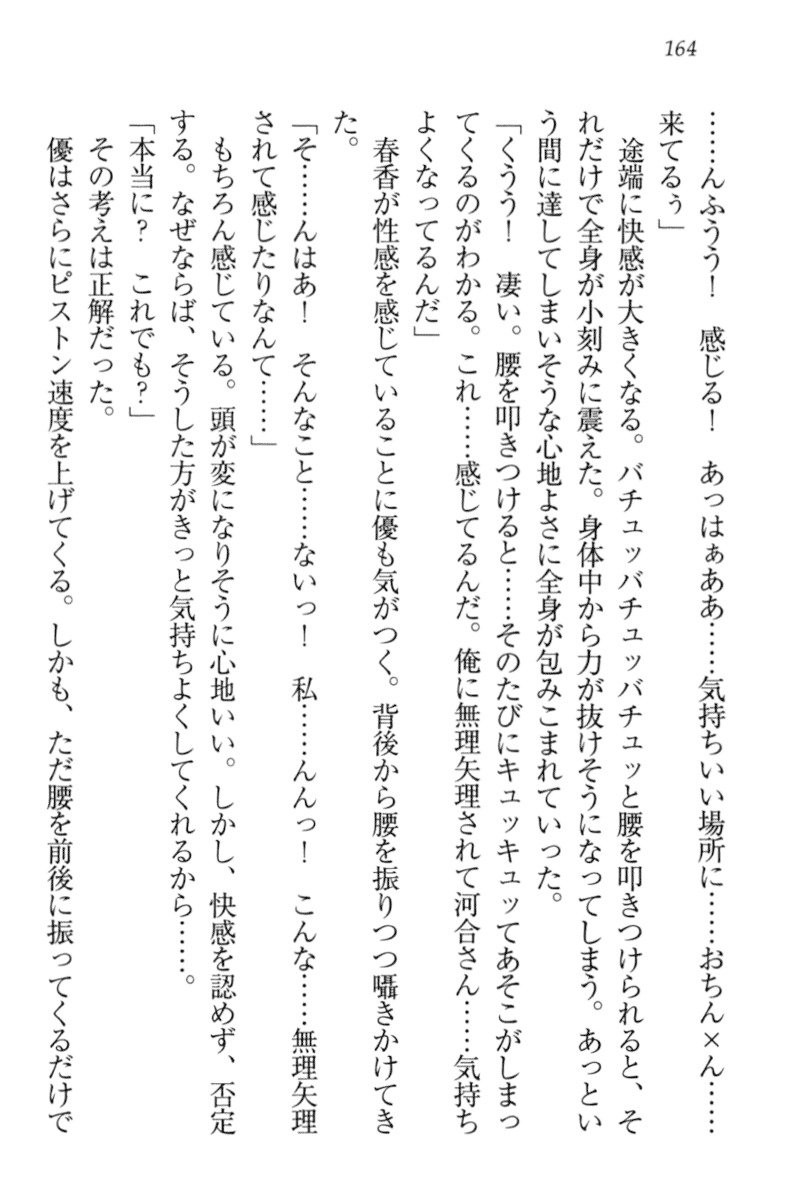 164
……んふうう！　感じる！　あっはぁああ……気持ちいい場所に……おちん×ん……
来てるぅ」
　途端に快感が大きくなる。バチュッバチュッバチュッと腰を叩きつけられると、そ
れだけで全身が小刻みに震えた。身体中から力が抜けそうになってしまう。あっとい
う間に達してしまいそうな心地よさに全身が包みこまれていった。
「くうう！　凄い。腰を叩きつけると……そのたびにキュッキュッてあそこがしまっ
てくるのがわかる。これ……感じてるんだ。俺に無理矢理されて河合さん……気持ち
よくなってるんだ」
　春香が性感を感じていることに優も気がつく。背後から腰を振りつつ囁きかけてき
た。
「そ……んはあ！　そんなこと……ないっ！　私……んんっ！　こんな……無理矢理
されて感じたりなんて……」
　もちろん感じている。頭が変になりそうに心地いい。しかし、快感を認めず、否定
する。なぜならば、そうした方がきっと気持ちよくしてくれるから……。
「本当に？　これでも？」
　その考えは正解だった。
　優はさらにピストン速度を上げてくる。しかも、ただ腰を前後に振ってくるだけで